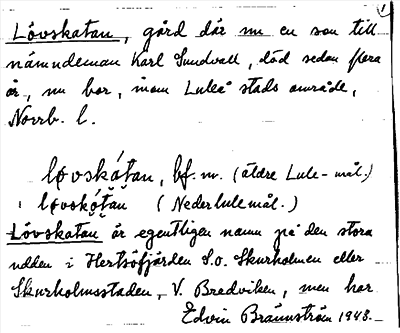 1
Lövskatan, gård där nu en son till
nämndeman Karl Sundvall, död sedan flera
år, nu bor, inom Luleå stads område,
Norrb. l.
løvskátan, bf. m. (äldre Lule-mål.)
løvskótan (Nederlulemål.)
Lövskatan är egentligen namn på den stora
udden i Hertsöfjärden S.o. Skurholmen eller
Skurholmsstaden, V. Bredviken, men har
Edvin Brännström 1948.